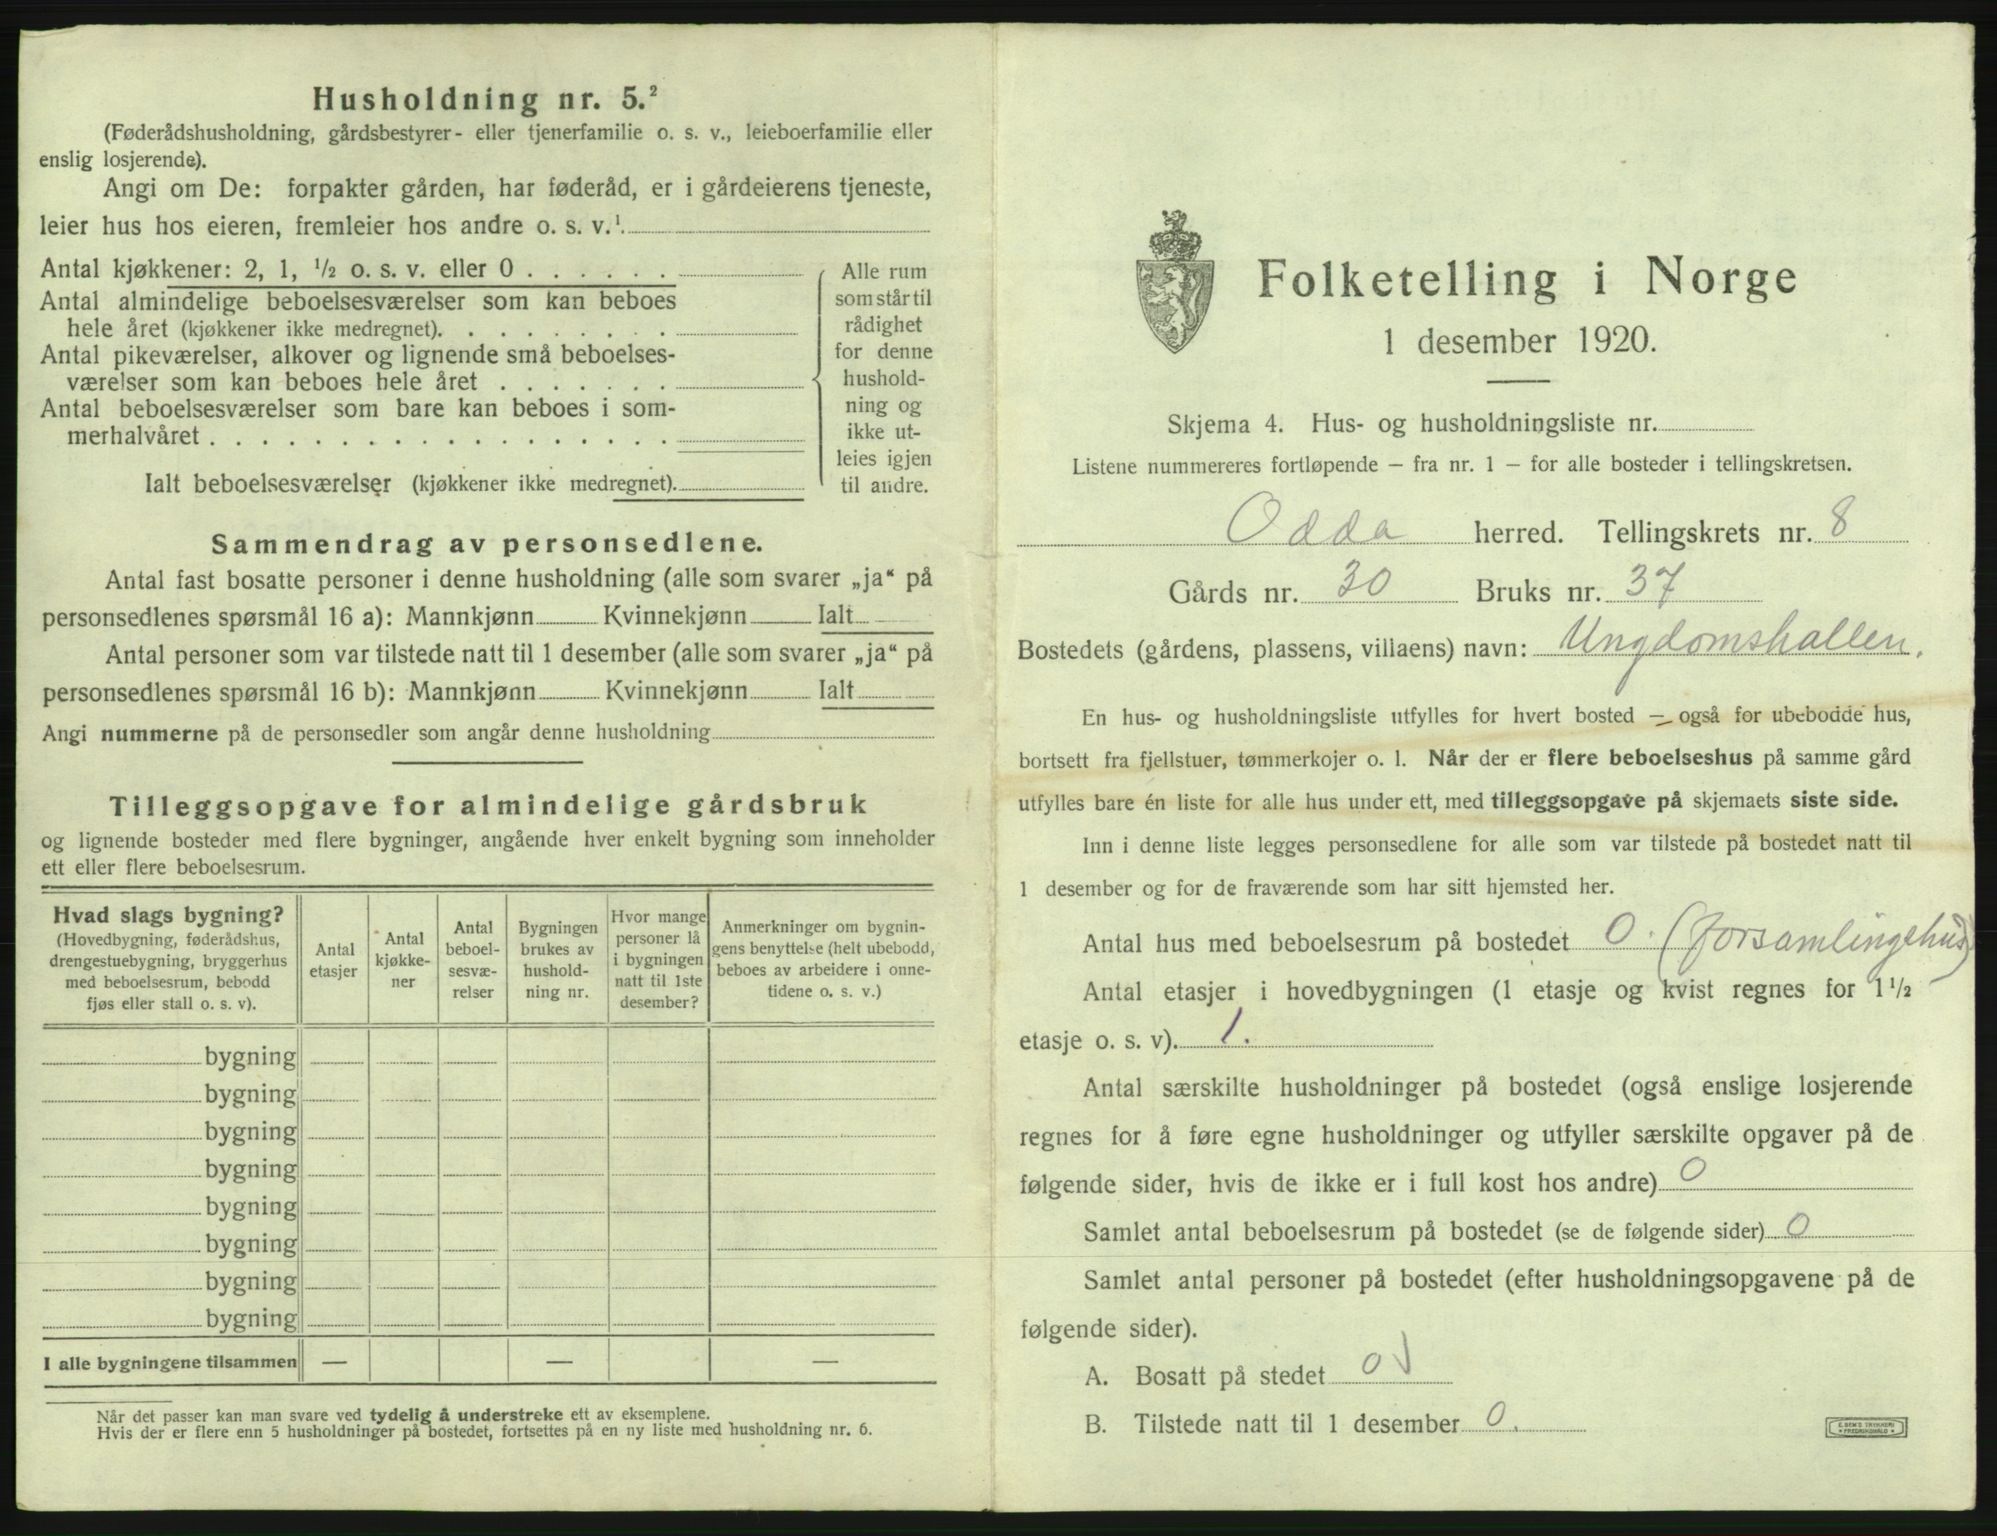 Husholdning nr. 5.²
(Føderådshusholdning, gårdsbestyrer- eller tjenerfamilie o. s. v., leieboerfamilie eller
enslig losjerende).
Angi om De: forpakter gården, har føderåd, er i gårdeierens tjeneste,
leier hus hos eieren, fremleier hos andre o. s. v.¹
Antal kjøkkener: 2, 1, ½ o. s. v. eller 0 . . . . . .
Antal almindelige beboelsesværelser som kan beboes
hele året (kjøkkener ikke medregnet). . . . . . . . .
Antal pikeværelser, alkover og lignende små beboelses-
værelser som kan beboes hele året . . . . . . .
Antal beboelsesværelser som bare kan beboes i som-
merhalvåret . . . . . . . . . . . . . . . . . .
Ialt beboelsesværelser (kjøkkener ikke medregnet).
Alle rum
som står til
rådighet
for denne
hushold-
ning og
ikke ut-
leies igjen
til andre.
Sammendrag av personsedlene.
Antal fast bosatte personer i denne husholdning (alle som svarer „ja“ på
personsedlenes spørsmål 16 a): Mannkjønn Kvinnekjønn Ialt
Antal personer som var tilstede natt til 1 desember (alle som svarer „ja“ på
personsedlenes spørsmål 16 b): Mannkjønn Kvinnekjønn Ialt
Angi nummerne på de personsedler som angår denne husholdning
Tilleggsopgave for almindelige gårdsbruk
og lignende bosteder med flere bygninger, angående hver enkelt bygning som inneholder
ett eller flere beboelsesrum.
Hvad slags bygning?
(Hovedbygning, føderådshus,
drengestuebygning, bryggerhus
med beboelsesrum, bebodd
fjøs eller stall o. s. v).
Antal
etasjer
Antal
kjøkke-
ner
Antal
beboel-
sesvæ-
relser
Bygningen
brukes av
hushold-
ning nr.
Hvor mange
personer lå
i bygningen
natt til 1ste
desember?
Anmerkninger om bygnin-
gens benyttelse (helt ubebodd,
beboes av arbeidere i onne-
tidene o. s. v.)
bygning
bygning
bygning
bygning
bygning
bygning
bygning
bygning
I alle bygningene tilsammen — — —
Når det passer kan man svare ved tydelig å understreke ett av eksemplene.
Hvis der er flere enn 5 husholdninger på bostedet, fortsettes på en ny liste med husholdning nr. 6.
Folketelling i Norge
1 desember 1920.
Skjema 4. Hus- og husholdningsliste nr.
Listene nummereres fortløpende — fra nr. 1 — for alle bosteder i tellingskretsen.
Odda herred. Tellingskrets nr. 8
Gårds nr. 30 Bruks nr. 37
Bostedets (gårdens, plassens, villaens) navn: Ungdomshallen.
En hus- og husholdningsliste utfylles for hvert bosted — også for ubebodde hus,
bortsett fra fjellstuer, tømmerkojer o. l. Når der er flere beboelseshus på samme gård
utfylles bare én liste for alle hus under ett, med tilleggsopgave på skjemaets siste side.
Inn i denne liste legges personsedlene for alle som var tilstede på bostedet natt til
1 desember og for de fraværende som har sitt hjemsted her.
Antal hus med beboelsesrum på bostedet 0. (forsamlingshus)
Antal etasjer i hovedbygningen (1 etasje og kvist regnes for 1½
etasje o. s. v). 1.
Antal særskilte husholdninger på bostedet (også enslige losjerende
regnes for å føre egne husholdninger og utfyller særskilte opgaver på de
følgende sider, hvis de ikke er i full kost hos andre) 0
Samlet antal beboelsesrum på bostedet (se de følgende sider) 0
Samlet antal personer på bostedet (efter husholdningsopgavene på de
følgende sider).
A. Bosatt på stedet 0
B. Tilstede natt til 1 desember 0.
E. SEM'S TRYKKERI
FREDRIKSHALD